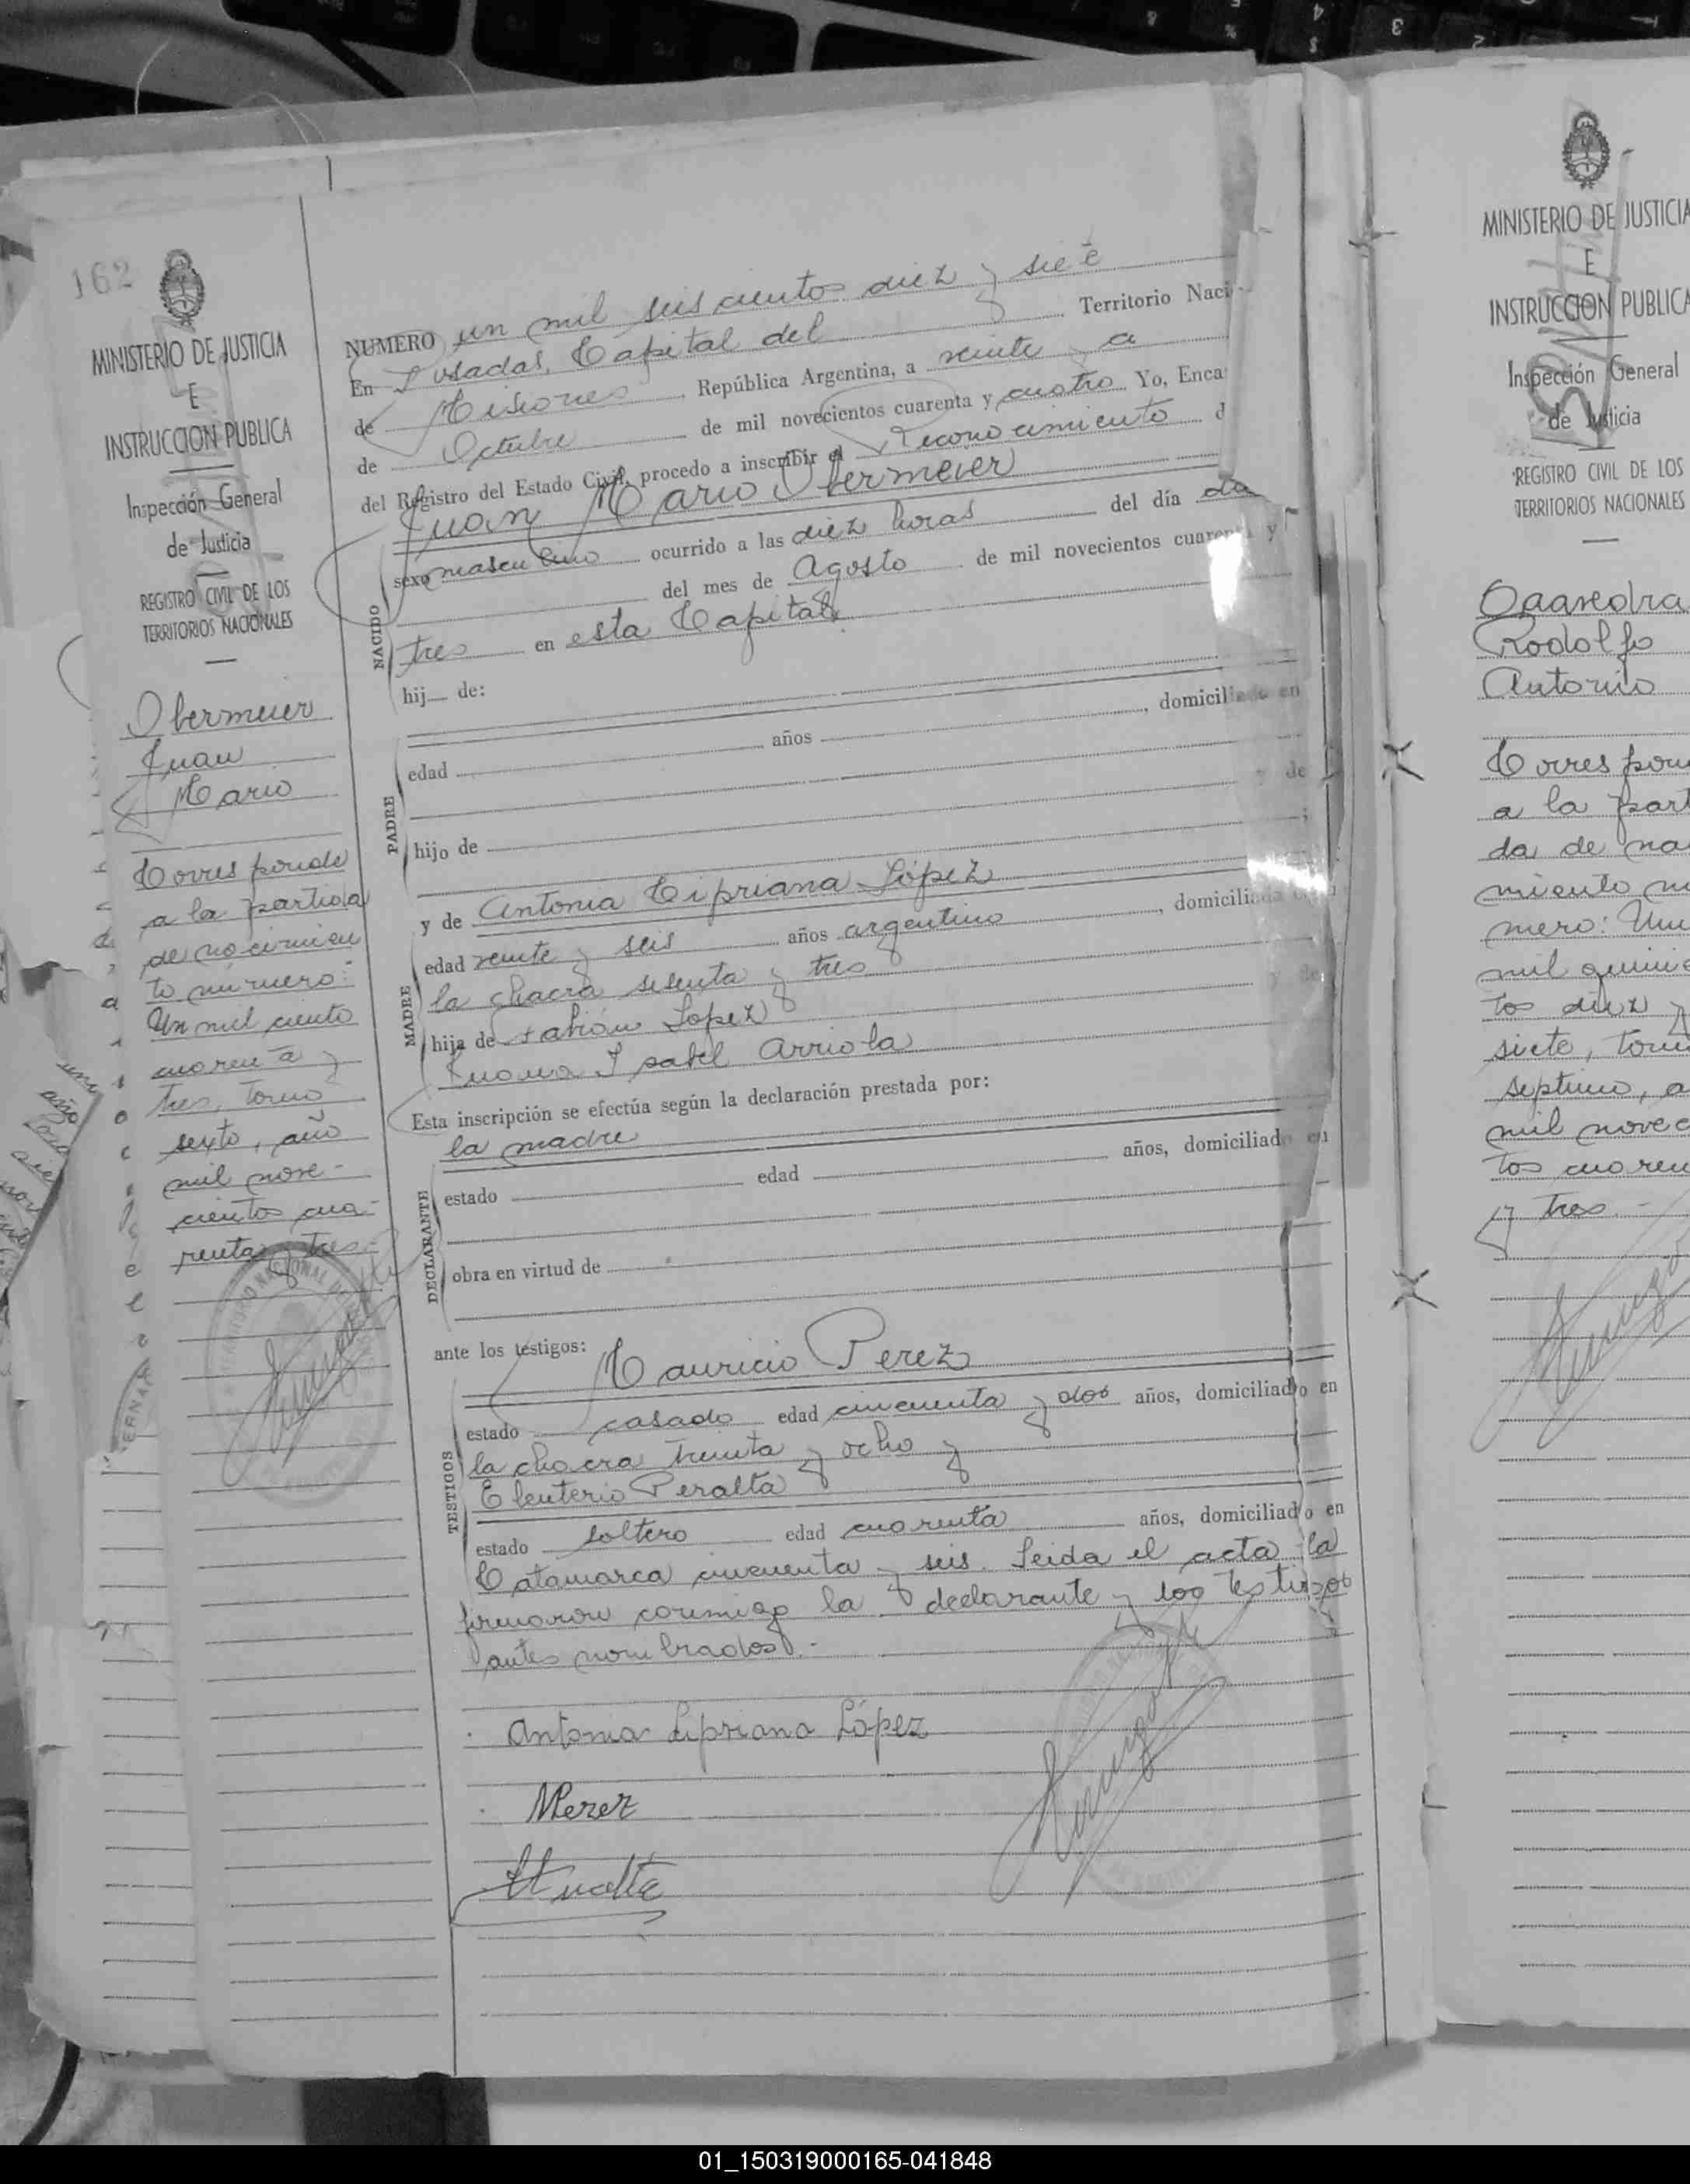 162
MINISTERIO DE JUSTICIA
E
INSTRUCCION PUBLICA
Inspección General
de Justicia
REGISTRO CIVIL DE LOS
TERRITORIOS NACIONALES
Obermeier
Juan
Mario
Corresponde
a la partida
de nacimien
to número:
Un mil ciento
cuarenta y
tres, tomo
sexto, año
mil nove-
cientos cua-
renta y tres-
NUMERO un mil seis cientos diez y siete
En Posadas, Capital del Territorio Naci
de Misiones, República Argentina, a veinte y
de Octubre de mil novecientos cuarenta y cuatro Yo, Enca
del Registro del Estado Civil, procedo a inscribir el Reconocimiento d
Juan Mario Obermeier
NACIDO
sexo masculino ocurrido a las diez horas del día
del mes de Agosto de mil novecientos cuarenta y
tres en esta Capital
hij de:
PADRE
edad años , domiciliado en
y de
hijo de
;
MADRE
y de Antonia Cipriana López
edad veinte y seis años argentina , domiciliada en
la chacra sesenta y tres
hija de Fabián Lopez y de
Juana Isabel Arriola
Esta inscripción se efectúa según la declaración prestada por:
la madre
DECLARANTE
estado edad años, domiciliado en
obra en virtud de
ante los testigos: Mauricio Perez
TESTIGOS
estado casado edad cincuenta y dos años, domiciliado en
la chacra treinta y ocho y
Eleuterio Peralta
estado soltero edad cuarenta años, domiciliado en
Catamarca cincuenta y seis. Leida el acta la
firmaron conmigo la declarante y los testigos
antes nombrados.-
Antonia Cipriana López
MPerez
MINISTERIO DE JUSTICIA
E
INSTRUCCION PUBLICA
Inspección General
de Justicia
REGISTRO CIVIL DE LOS
TERRITORIOS NACIONALES
Saavedra
Rodolfo
Antonio
Correspon
a la part
da de na
miento nu
mero: Un
mil quinie
tos diez y
siete, tomo
septimo, a
mil novec
tos cuaren
y tres.-
01_150319000165-041848